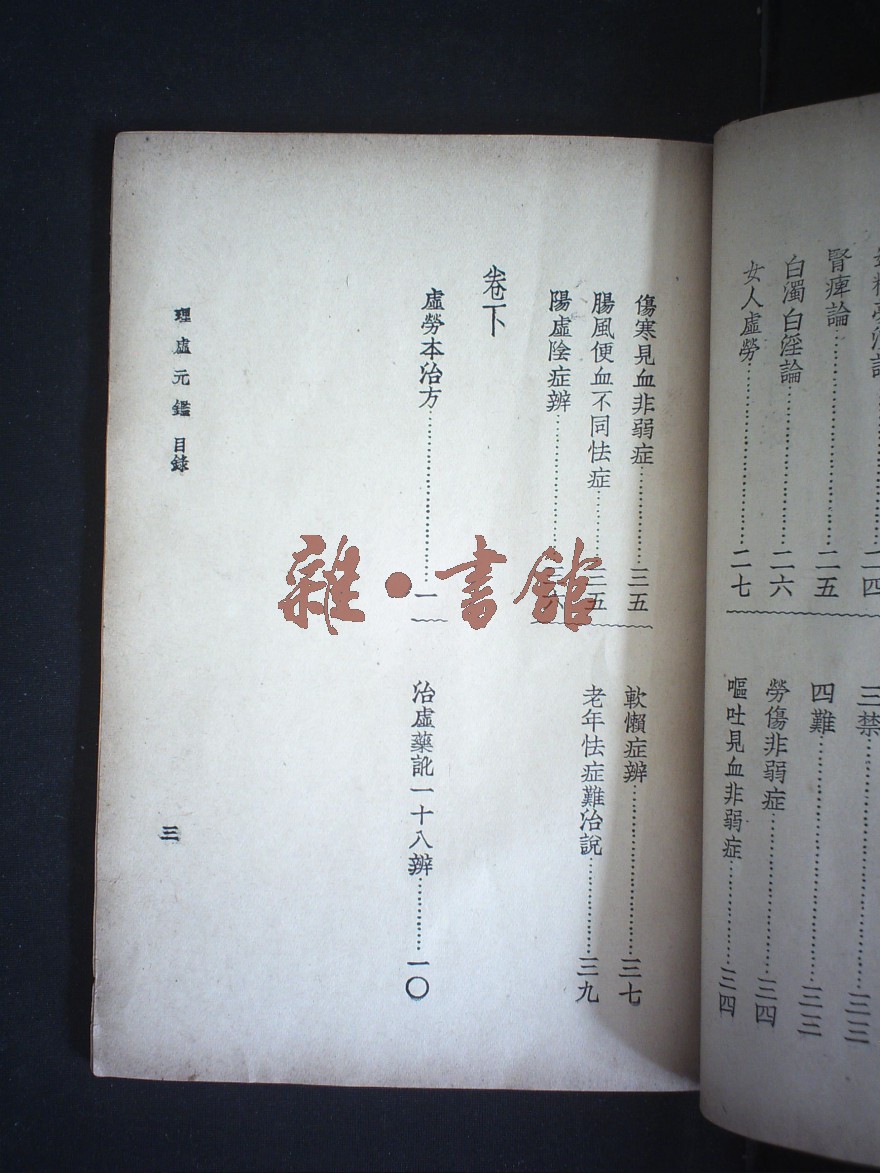 二四
腎痺論……二五
白濁白淫論……二六
女人虛勞……二七
三禁……三三
四難……三三
勞傷非弱症……三四
嘔吐見血非弱症……三四
傷寒見血非弱症……三五
腸風便血不同怯症……三五
陽虛陰症辨……
軟懶症辨……三七
老年怯症難治說……三九
卷下
虛勞本治方……一
治虛藥訛一十八辨……一〇
理虛元鑑 目錄
三
雜·書館